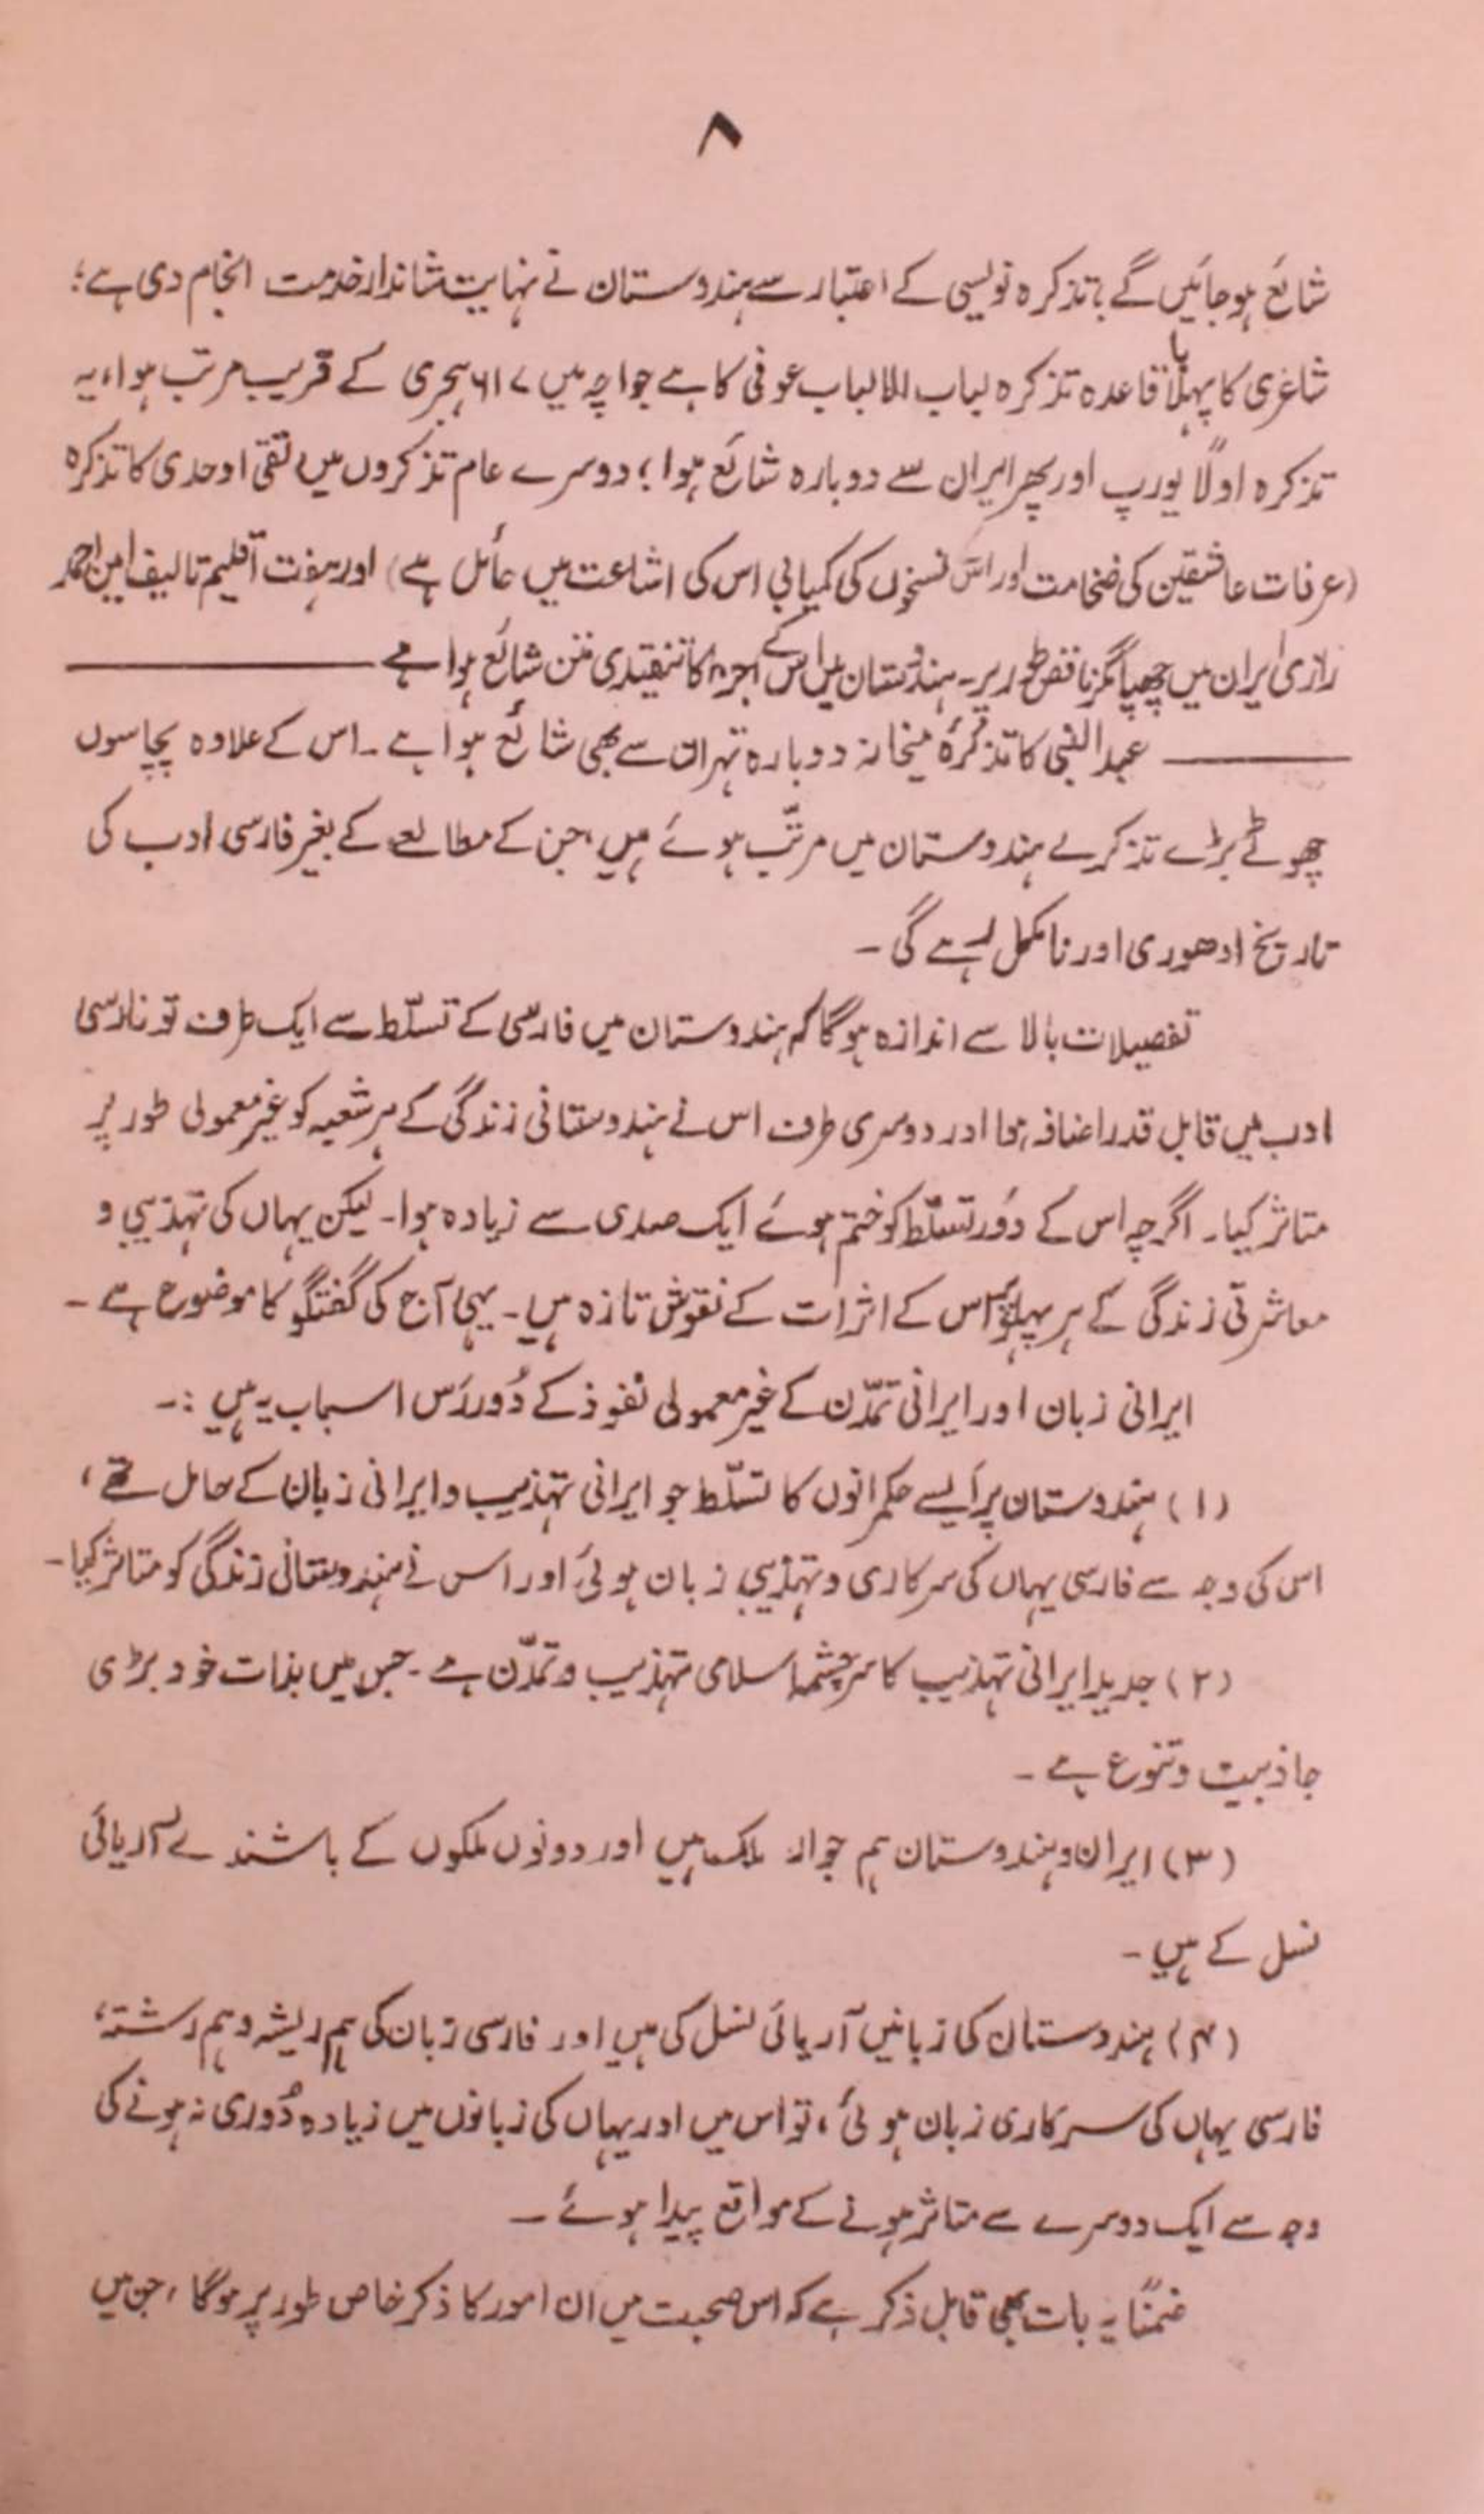 ۸
شائع ہوجائیں گے؟ تذکرہ نویسی کے اعتبار سے ہندوستان نے نہایت شاندار خدمت انجام دی ہے؛
شاعری کا پہلا باقاعدہ تذکرہ لباب الالباب عوفی کا ہے جو اچہ میں ۶۱۷ ہجری کے قریب مرتب ہوا، یہ
تذکرہ اولاً یورپ اور پھر ایران سے دوبارہ شائع ہوا؛ دوسرے عام تذکروں میں تقی اوحدی کا تذکرہ
(عرفات عاشقین کی ضخامت اور اس نسخوں کی کمیابی اس کی اشاعت میں حائل ہے) اور ہفت اقلیم تالیف امین احمد
رازی ایران میں چھپا مگر ناقص طور پر۔ ہندوستان میں اس کے اجزا کا تنقیدی متن شائع ہوا ہے ———
——— عبدالنبی کا تذکرۂ میخانہ دوبارہ تہران سے بھی شائع ہوا ہے۔ اس کے علاوہ پچاسوں
چھوٹے بڑے تذکرے ہندوستان میں مرتّب ہوئے ہیں، جن کے مطالعے کے بغیر فارسی ادب کی
تاریخ ادھوری اور نامکمل رہے گی۔
تفصیلات بالا سے اندازہ ہوگا کہ ہندوستان میں فارسی کے تسلّط سے ایک طرف تو فارسی
ادب میں قابل قدر اضافہ ہوا اور دوسری طرف اس نے ہندوستانی زندگی کے ہر شعبہ کو غیر معمولی طور پر
متاثر کیا۔ اگرچہ اس کے دَور تسلّط کو ختم ہوئے ایک صدی سے زیادہ ہوا۔ لیکن یہاں کی تہذیبی و
معاشرتی زندگی کے ہر پہلو پر اس کے اثرات کے نقوش تازہ ہیں۔ یہی آج کی گفتگو کا موضوع ہے۔
ایرانی زبان اور ایرانی تمدّن کے غیر معمولی نفوذ کے دُوررَس اسباب یہ ہیں :۔
(۱) ہندوستان پر ایسے حکمرانوں کا تسلّط جو ایرانی تہذیب و ایرانی زبان کے حامل تھے،
اس کی وجہ سے فارسی یہاں کی سرکاری و تہذیبی زبان ہوئی اور اس نے ہندوستانی زندگی کو متاثر کیا۔
(۲) جدید ایرانی تہذیب کا سرچشمہ اسلامی تہذیب و تمدّن ہے۔ جس میں بذات خود بڑی
جاذبیت و تنوع ہے۔
(۳) ایران و ہندوستان ہم جوار ملک ہیں اور دونوں ملکوں کے باشندے آریائی
نسل کے ہیں۔
(۴) ہندوستان کی زبانیں آریائی نسل کی ہیں اور فارسی زبان کی ہم ریشہ و ہم رشتہ،
فارسی یہاں کی سرکاری زبان ہوئی، تو اس میں اور یہاں کی زبانوں میں زیادہ دُوری نہ ہونے کی
وجہ سے ایک دوسرے سے متاثر ہونے کے مواقع پیدا ہوئے۔
ضمناً یہ بات بھی قابل ذکر ہے کہ اس صحبت میں ان امور کا ذکر خاص طور پر ہوگا، جن میں